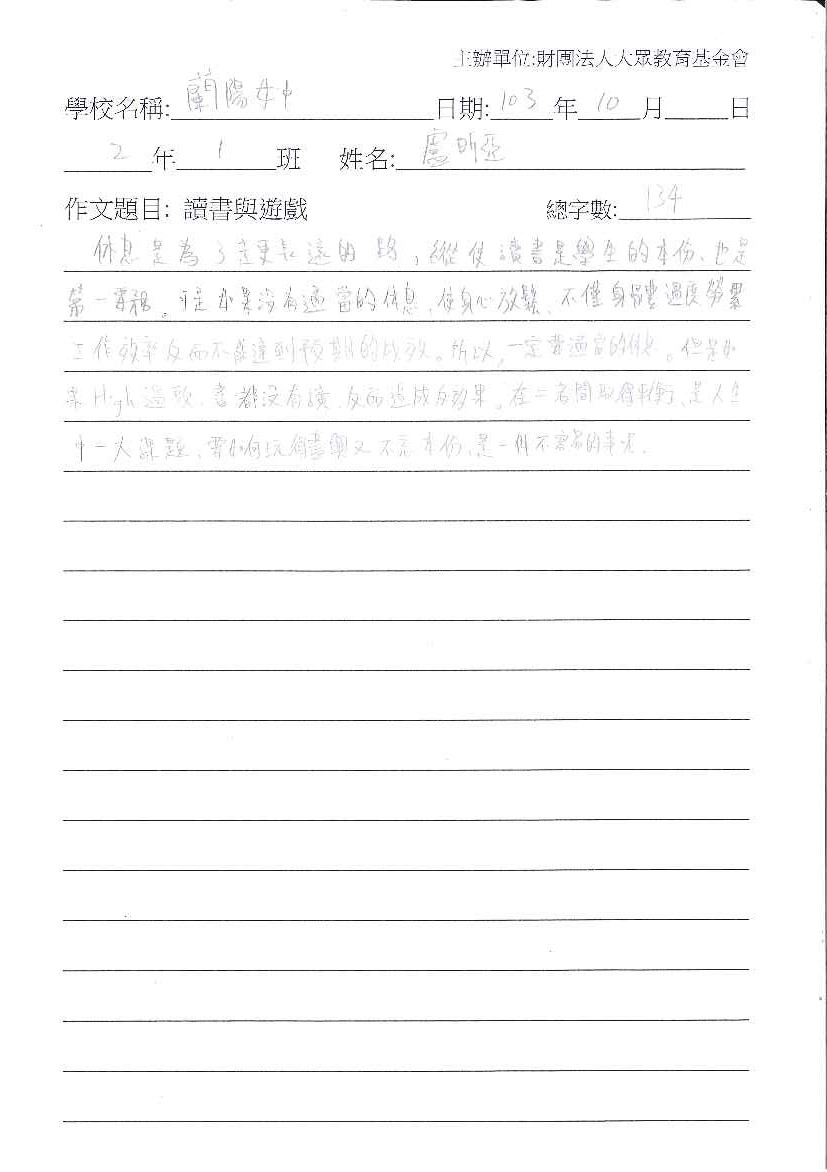 主辦單位:財團法人大眾教育基金會
學校名稱: 蘭陽女中 日期: 103 年 10 月 日
2 年 1 班 姓名: 盧昕亞
作文題目: 讀書與遊戲 總字數: 134
休息是為了走更長遠的路,縱使讀書是學生的本份、也是
第一要務。可是如果沒有適當的休息、使身心放鬆、不僅身體過度勞累
工作效率反而不能達到預期的成效。所以,一定要適當的休息。但是如
果High過頭、書都沒有讀、反而造成反效果。在二者間取得平衡、是人生
中一大課題、要如何玩得盡興又不忘本份、是一件不容易的事呢.